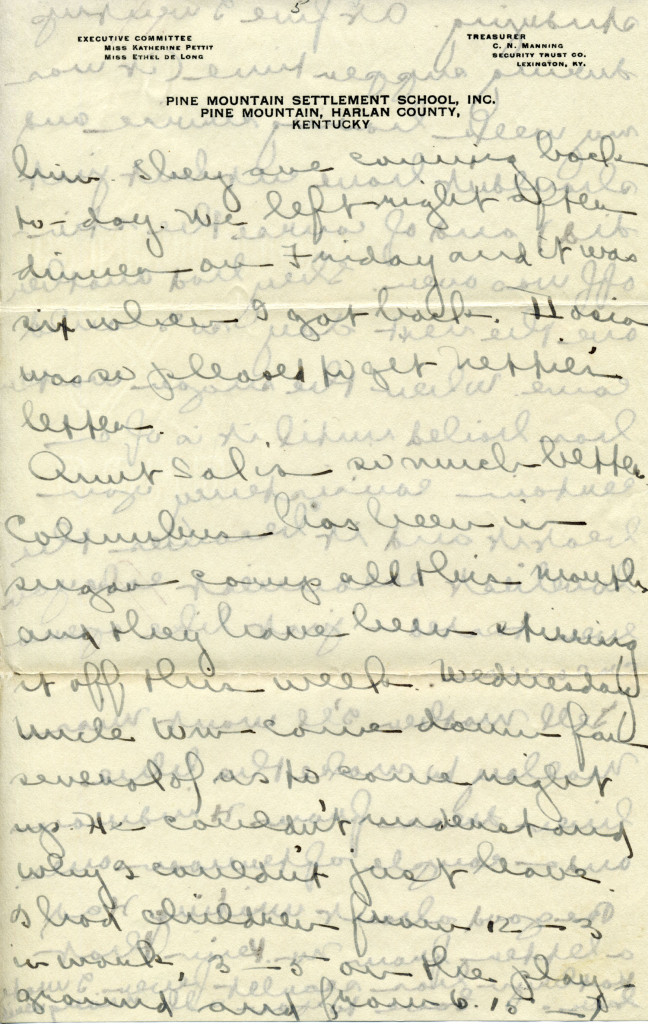 5
EXECUTIVE COMMITTEE
MISS KATHERINE PETTIT
MISS ETHEL DE LONG
TREASURER
C. N. MANNING
SECURITY TRUST CO.
LEXINGTON, KY.
PINE MOUNTAIN SETTLEMENT SCHOOL, INC.
PINE MOUNTAIN, HARLAN COUNTY,
KENTUCKY
him. They are coming back
to-day. We left right after
dinner on Friday and it was
six when I got back.
was so pleased to get Nettie's
letter.
Aunt Sal is so much better.
Columbus has been in
sugar camp all this month
and they have been stirring
it off this week. Wednesday
Uncle Wm come down for
several of us to come right
up. He couldn't understand
why I couldn't just leave.
I had children from 12 – 3
in work, 3 – 5 on the play-
ground and from 6.15 –